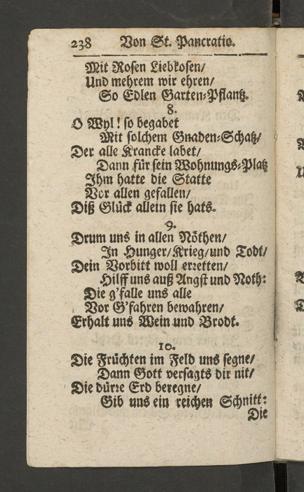 238 Von St. Pancratio.
Mit Rosen Liebkosen/
Und mehrem wir ehren/
So Edlen Garten-Pflantz.
8.
O Wyl! so begabet
Mit solchem Gnaden-Schatz/
Der alle Krancke labet/
Dann für sein Wohnungs-Platz
Ihm hatte die Statte
Vor allen gefallen/
Diß Glück allein sie hats.
9.
Drum uns in allen Nöthen/
In Hunger/Krieg/und Todt/
Dein Vorbitt woll erretten/
Hilff uns auß Angst und Noth:
Die g'falle uns alle
Vor G'fahren bewahren/
Erhalt uns Wein und Brodt.
10.
Die Früchten im Feld uns segne/
Dann Gott versagts dir nit/
Die dürre Erd beregne/
Gib uns ein reichen Schnitt:
Die